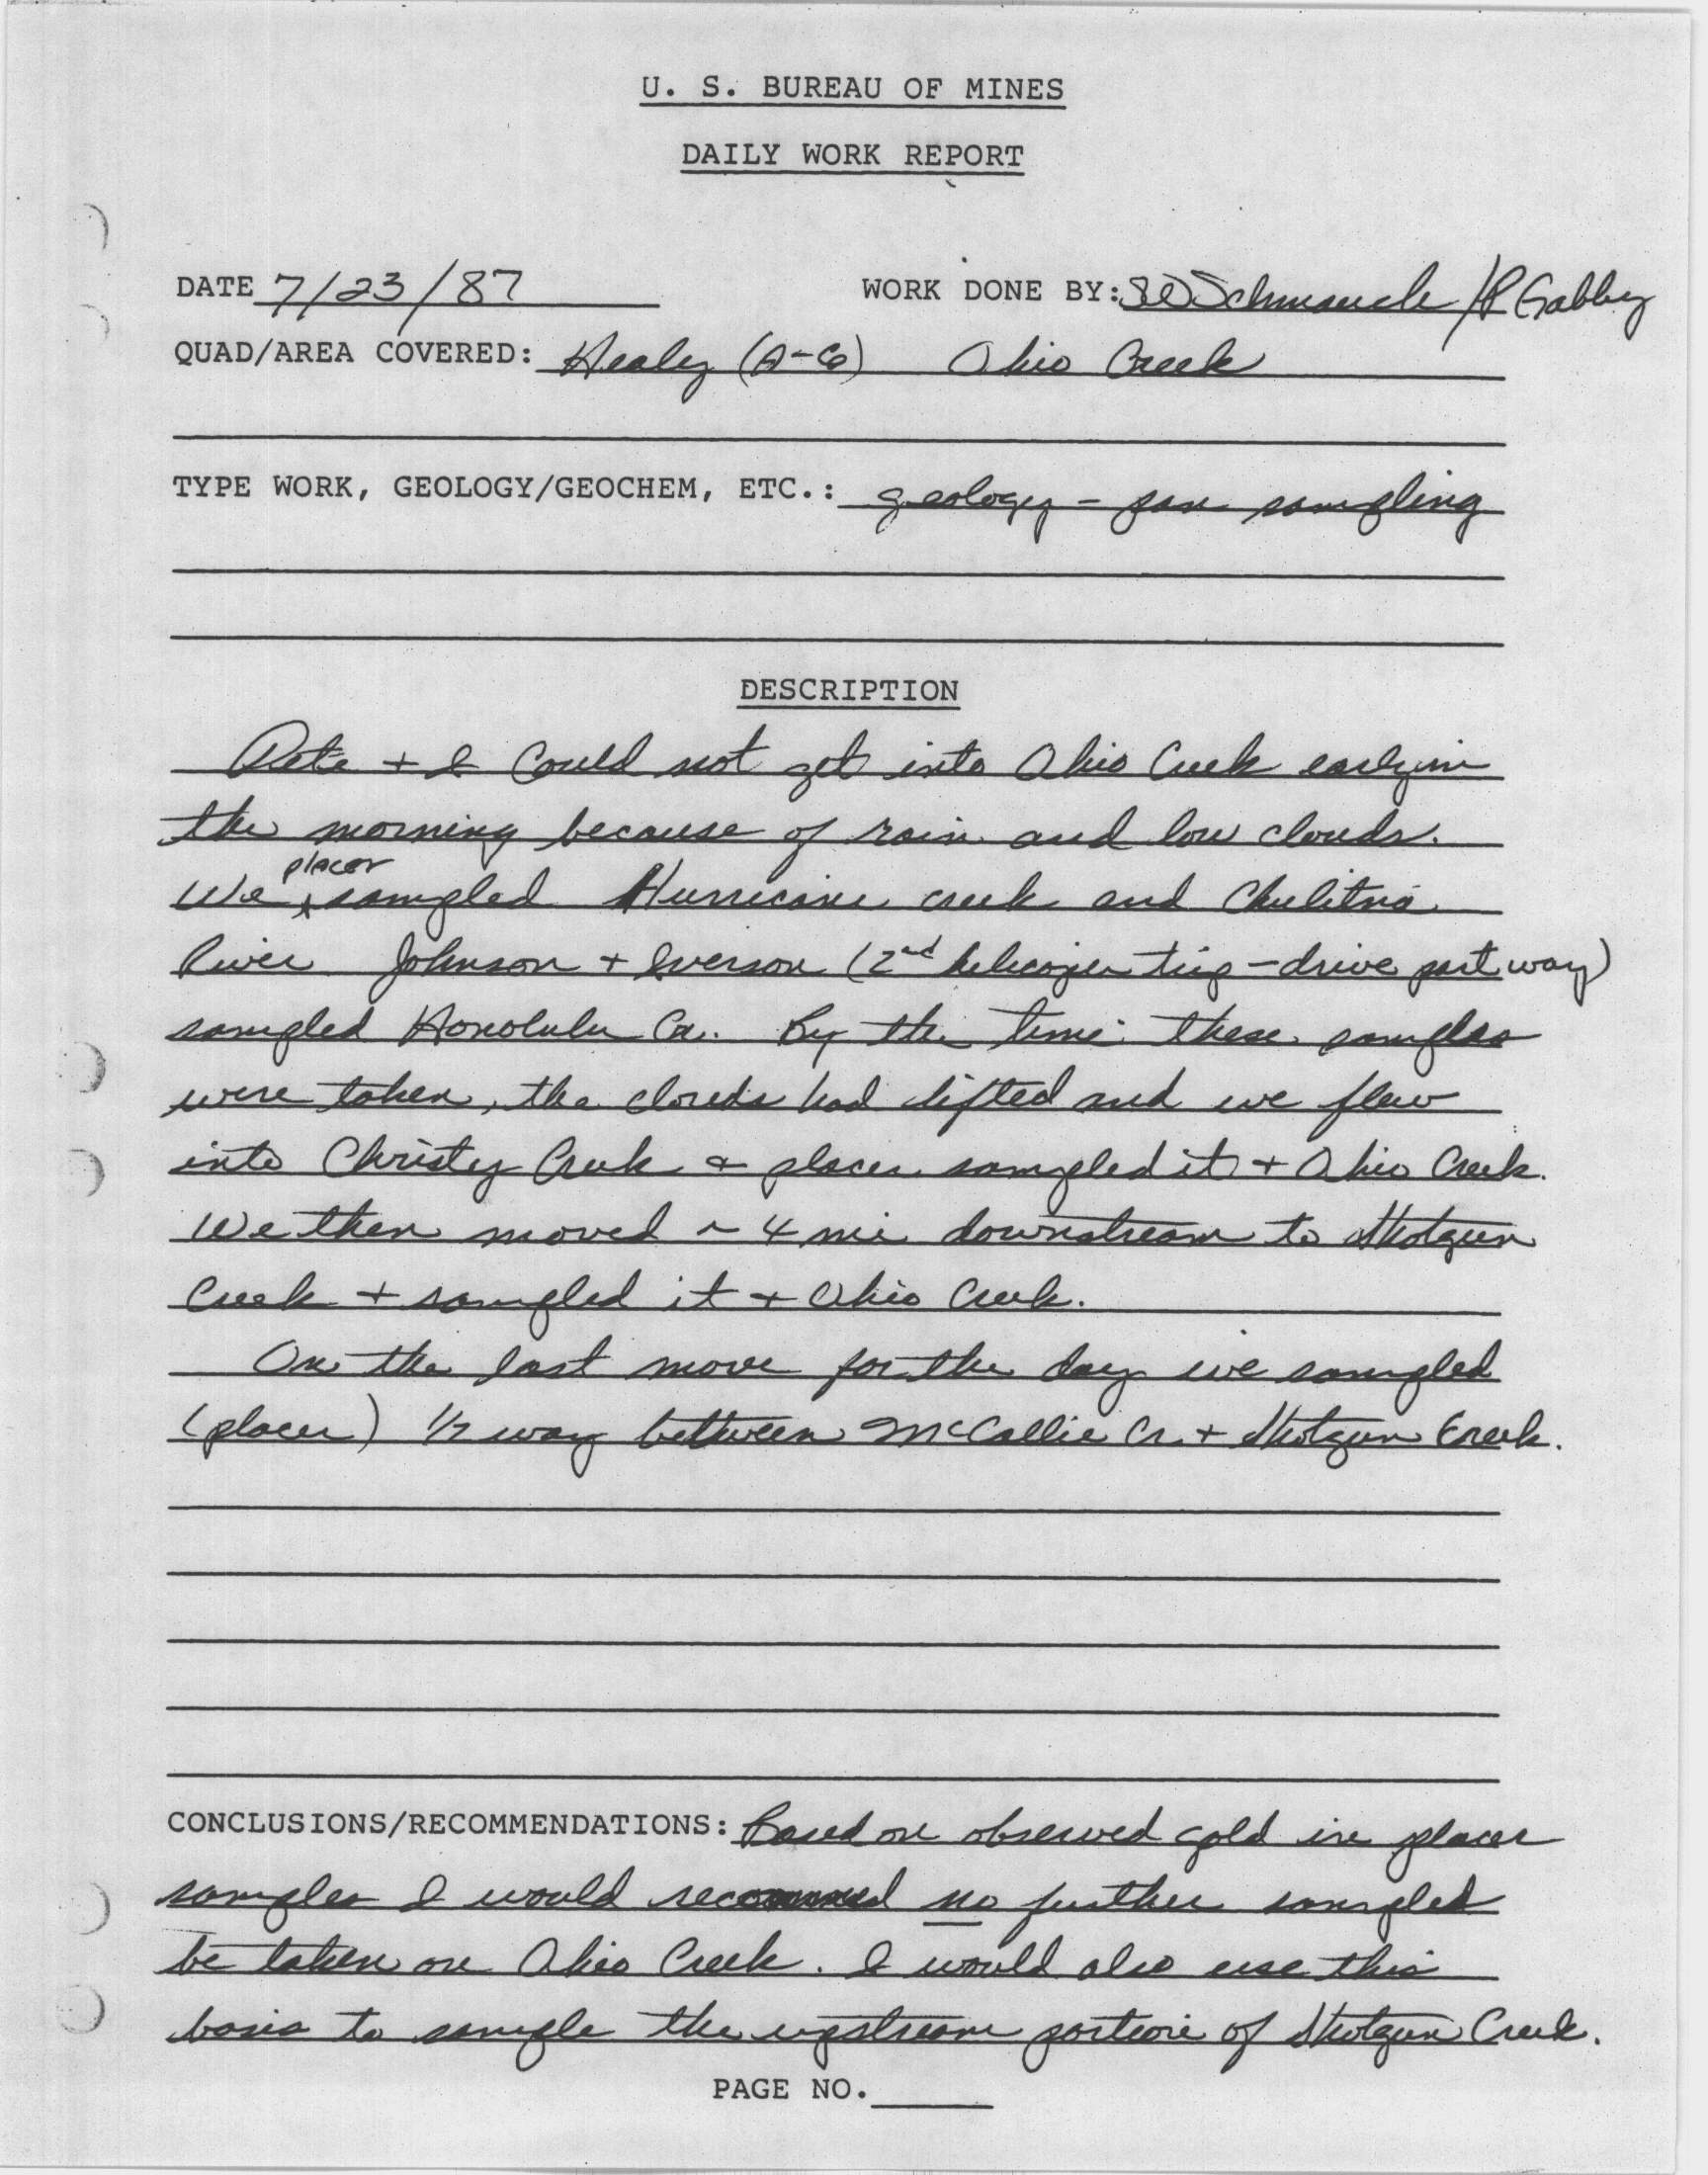 U. S. BUREAU OF MINES
DAILY WORK REPORT
DATE 7/23/87 WORK DONE BY: SW Schmauch / P Gabby
QUAD/AREA COVERED: Healy (A-6) Ohio Creek
TYPE WORK, GEOLOGY/GEOCHEM, ETC.: geology - pan sampling
DESCRIPTION
Pete + I could not get into Ohio Creek early in
the morning because of rain and low clouds.
We placer sampled Hurricane creek and Chulitna
River Johnson + Iverson (2nd helicopter trip - drive part way)
sampled Honolulu Cr. By the time these samples
were taken, the clouds had lifted and we flew
into Christy Creek + placer sampled it + Ohio Creek.
We then moved ~ 4 mi downstream to Shotgun
Creek + sampled it + Ohio Creek.
On the last move for the day we sampled
(placer) 1/2 way between McCallie Cr. + Shotgun Creek.
CONCLUSIONS/RECOMMENDATIONS: Based on observed gold in placer
samples I would recommend no further sampled
be taken on Ohio Creek. I would also use this
basis to sample the upstream portion of Shotgun Creek.
PAGE NO.